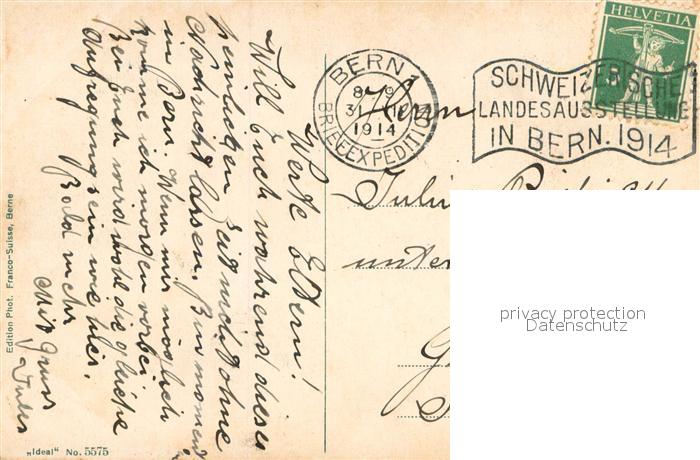 Werte Eltern!
Will Euch während dieser
heimlichen Zeit nicht ohne
Nachricht lassen. Bin momentan
in Bern. Wenn mir möglich
komme ich morgen vorbei
Bei Euch wird wohl die gleiche
Aufregung sein wie hier.
Bald mehr
Mit Gruss
Jules
Edition Phot. Franco-Suisse, Berne
„Ideal" No. 5575
HELVETIA
BERN 1
8-9
1914
BRIEFEXPEDITION
SCHWEIZERISCHE
LANDESAUSSTELLUNG
IN BERN. 1914
Herrn
unter
privacy protection
Datenschutz